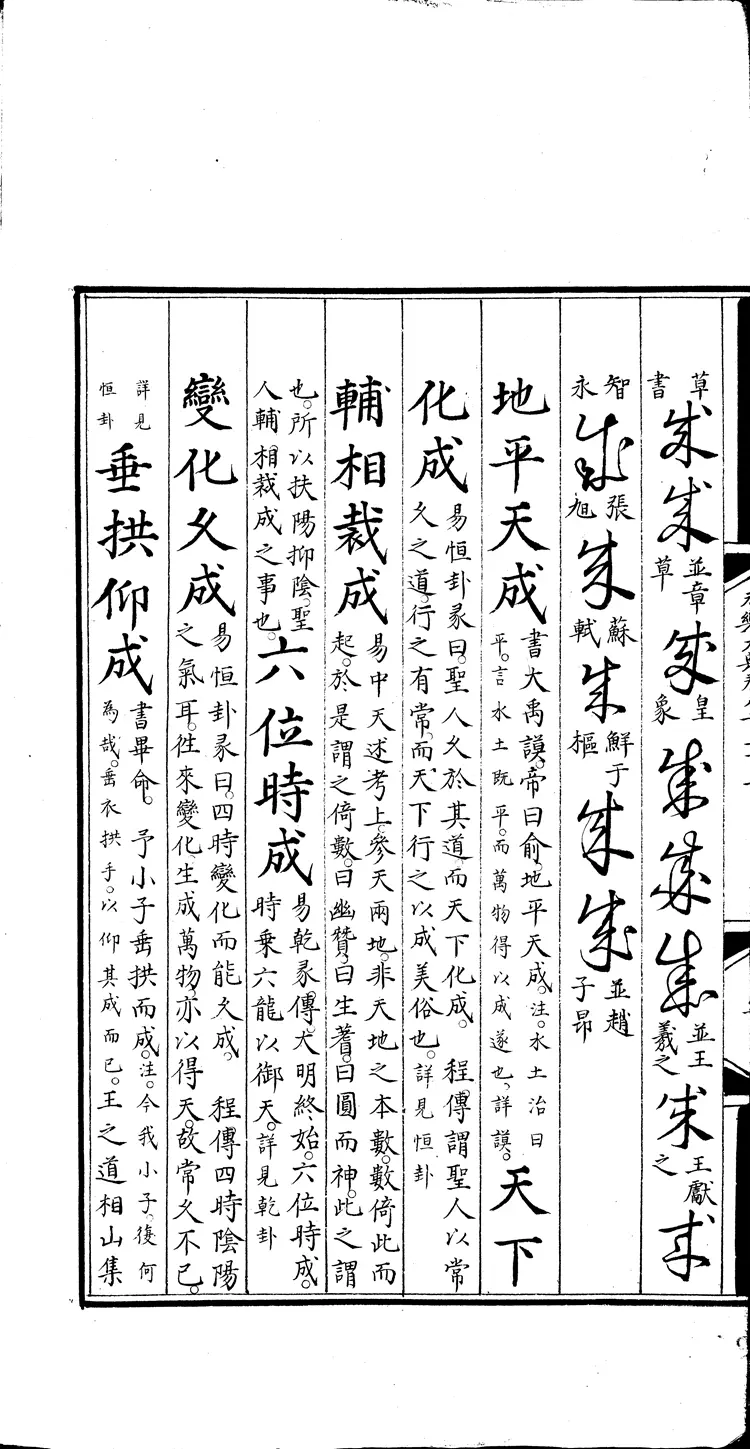 草書 成 成 並章草 成 皇象 成 成 成 並王羲之 成 王獻之 成
智永 成 張旭 成 蘇軾 成 鮮于樞 成 成 並趙子昂
地平天成 書大禹謨。帝曰俞。地平天成。注。水土治曰平。言水土既平。而萬物得以成遂也。詳謨。 天下
化成 易恒卦彖曰。聖人久於其道。而天下化成。 程傳謂聖人以常久之道。行之有常。而天下行之以成美俗也。詳見恒卦
輔相裁成 易中天述考上。參天兩地。非天地之本數。數倚此而起。於是謂之倚數。曰幽贊。曰生蓍。曰圓而神。此之謂
也。所以扶陽抑陰。聖人輔相裁成之事也。 六位時成 易乾彖傳。大明終始。六位時成。時乗六龍以御天。詳見乾卦
變化久成 易恒卦彖曰。四時變化而能久成。 程傳四時陰陽之氣耳。徃來變化。生成萬物。亦以得天。故常久不已。
詳見恒卦 垂拱仰成 書畢命。予小子垂拱而成。注。今我小子。復何為哉。垂衣拱手。以仰其成而已。王之道相山集